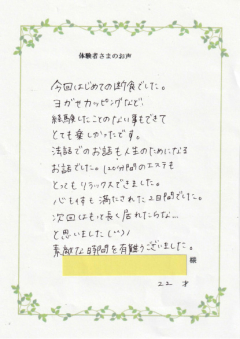 体験者さまのお声
今回はじめての断食でした。
ヨガやカッピングなど、
経験したことのない事もできて
とても楽しかったです。
法話でのお話も人生のためになる
お話でした。120分間のエステも
とってもリラックスできました。
心も体も満たされた2日間でした。
次回はもっと長く居れたらな…
と思いました(^^)
素敵な時間を有難うございました。
様
22 才